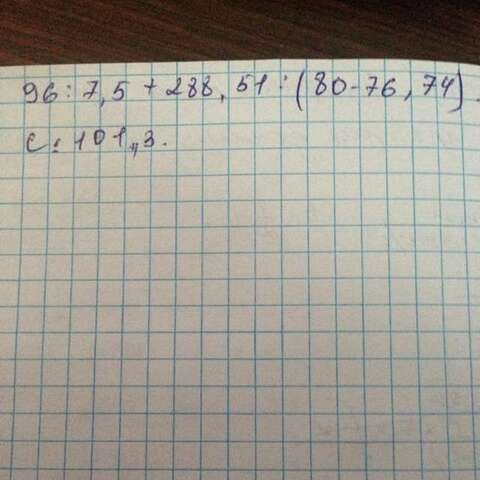 96:7,5+288,51:(80-76,74).
С:101,,3.